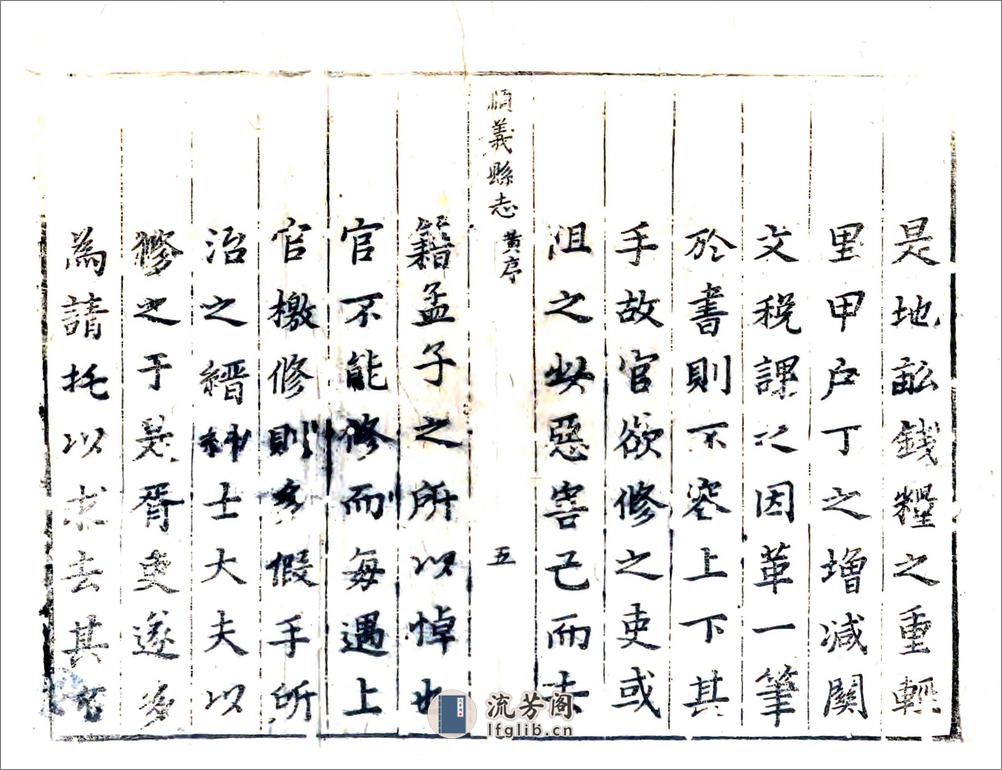 是地畝錢糧之重輕
里甲户丁之增減關
文税課之因革一筆
於書則不容上下其
手故官欲修之吏或
沮之此惡害己而去
順義縣志 黄序 五
籍孟子之所以悼也
官不能修而每遇上
官檄修則多假手所
治之縉紳士大夫以
修之于是胥吏遂多
為請托以求去其
流芳阁
lfglib.cn